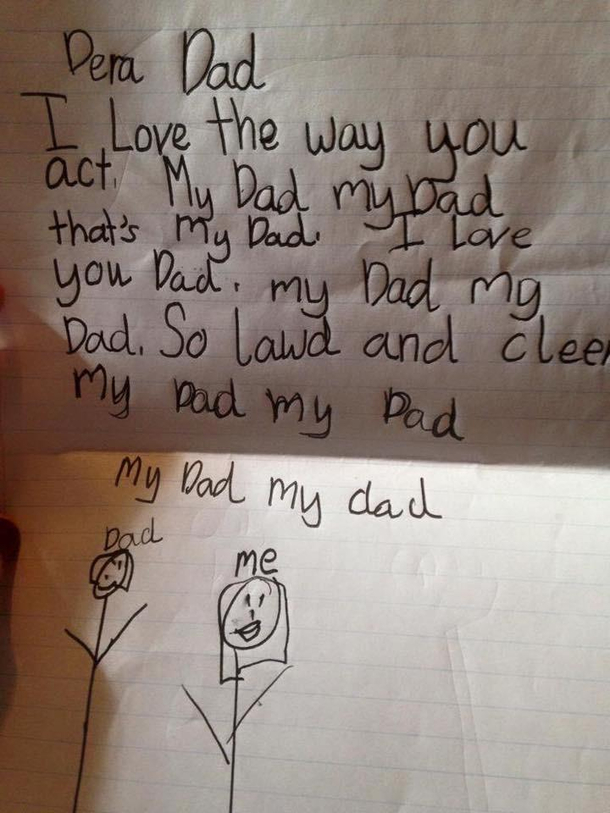 Dera Dad
I Love the way you
act. My Dad my Dad
that's my Dad. I Love
you Dad. my Dad my
Dad. So lawd and cleer
my Dad my Dad
My Dad my dad
Dad
me